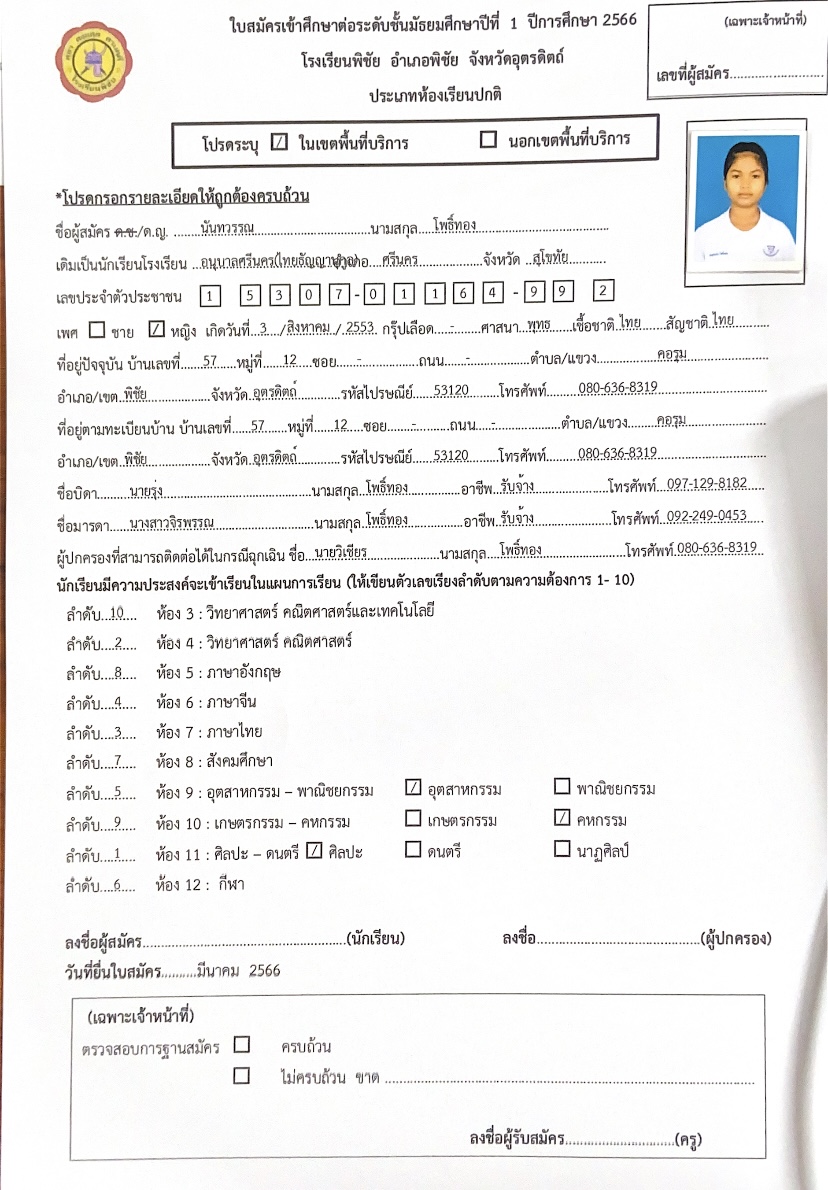 ใบสมัครเข้าศึกษาต่อระดับชั้นมัธยมศึกษาปีที่ 1 ปีการศึกษา 2566
(เฉพาะเจ้าหน้าที่)
โรงเรียนพิชัย อำเภอพิชัย จังหวัดอุตรดิตถ์
เลขที่ผู้สมัคร........................
ประเภทห้องเรียนปกติ
โปรดระบุ ☑ ในเขตพื้นที่บริการ ☐ นอกเขตพื้นที่บริการ
*โปรดกรอกรายละเอียดให้ถูกต้องครบถ้วน
ชื่อผู้สมัคร ด.ช./ด.ญ. ......นันทวรรณ......นามสกุล....โพธิ์ทอง......
เดิมเป็นนักเรียนโรงเรียน ...อนุบาลศรีนคร(ไทยธัญญานุกูล)อำเภอ...ศรีนคร......จังหวัด ..สุโขทัย......
เลขประจำตัวประชาชน 1 5 3 0 7 - 0 1 1 6 4 - 9 9 2
เพศ ☐ ชาย ☑ หญิง เกิดวันที่..3.../สิงหาคม./..2553. กรุ๊ปเลือด....-......ศาสนา..พุทธ...เชื้อชาติ.ไทย......สัญชาติ.ไทย......
ที่อยู่ปัจจุบัน บ้านเลขที่......57.....หมู่ที่.....12....ซอย......-......ถนน......-......ตำบล/แขวง......คอรุม......
อำเภอ/เขต.พิชัย......จังหวัด.อุตรดิตถ์......รหัสไปรษณีย์......53120......โทรศัพท์......080-636-8319......
ที่อยู่ตามทะเบียนบ้าน บ้านเลขที่.....57......หมู่ที่.....12....ซอย......-......ถนน....-......ตำบล/แขวง......คอรุม......
อำเภอ/เขต.พิชัย......จังหวัด.อุตรดิตถ์......รหัสไปรษณีย์......53120......โทรศัพท์......080-636-8319......
ชื่อบิดา......นายรุ่ง......นามสกุล.โพธิ์ทอง......อาชีพ.รับจ้าง......โทรศัพท์...097-129-8182......
ชื่อมารดา....นางสาวจิรพรรณ......นามสกุล.โพธิ์ทอง......อาชีพ.รับจ้าง......โทรศัพท์..092-249-0453......
ผู้ปกครองที่สามารถติดต่อได้ในกรณีฉุกเฉิน ชื่อ..นายวิเชียร......นามสกุล....โพธิ์ทอง......โทรศัพท์.080-636-8319..
นักเรียนมีความประสงค์จะเข้าเรียนในแผนการเรียน (ให้เขียนตัวเลขเรียงลำดับตามความต้องการ 1- 10)
ลำดับ..10.... ห้อง 3 : วิทยาศาสตร์ คณิตศาสตร์และเทคโนโลยี
ลำดับ....2.... ห้อง 4 : วิทยาศาสตร์ คณิตศาสตร์
ลำดับ....8.... ห้อง 5 : ภาษาอังกฤษ
ลำดับ....4.... ห้อง 6 : ภาษาจีน
ลำดับ....3.... ห้อง 7 : ภาษาไทย
ลำดับ....7.... ห้อง 8 : สังคมศึกษา
ลำดับ....5.... ห้อง 9 : อุตสาหกรรม – พาณิชยกรรม ☑ อุตสาหกรรม ☐ พาณิชยกรรม
ลำดับ....9.... ห้อง 10 : เกษตรกรรม – คหกรรม ☐ เกษตรกรรม ☑ คหกรรม
ลำดับ....1.... ห้อง 11 : ศิลปะ – ดนตรี ☑ ศิลปะ ☐ ดนตรี ☐ นาฏศิลป์
ลำดับ....6.... ห้อง 12 : กีฬา
ลงชื่อผู้สมัคร................................................(นักเรียน) ลงชื่อ......................................(ผู้ปกครอง)
วันที่ยื่นใบสมัคร.........มีนาคม 2566
(เฉพาะเจ้าหน้าที่)
ตรวจสอบการฐานสมัคร ☐ ครบถ้วน
☐ ไม่ครบถ้วน ขาด ..........................................................................................
ลงชื่อผู้รับสมัคร..........................(ครู)